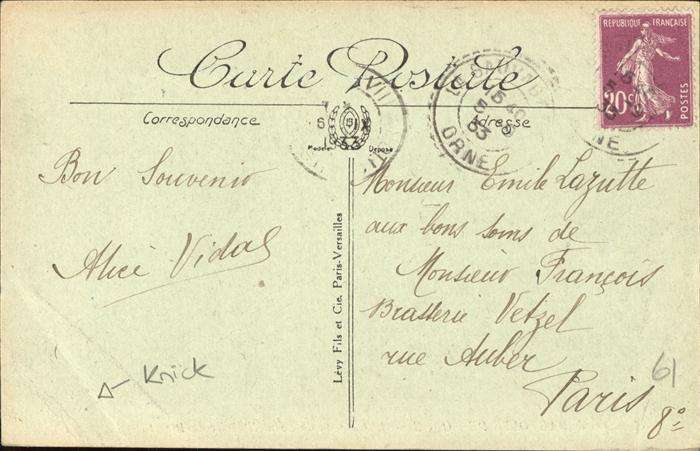 Carte Postale
Correspondance
Adresse
REPUBLIQUE FRANÇAISE
20c
POSTES
ORNE
Modèle Déposé
Bon Souvenir
Alice Vidal
Monsieur Emile Lazutte
aux bons soins de
Monsieur François
Brasserie Vetzel
rue Auber
Paris
8º
61
Knick
Lévy Fils et Cie, Paris-Versailles